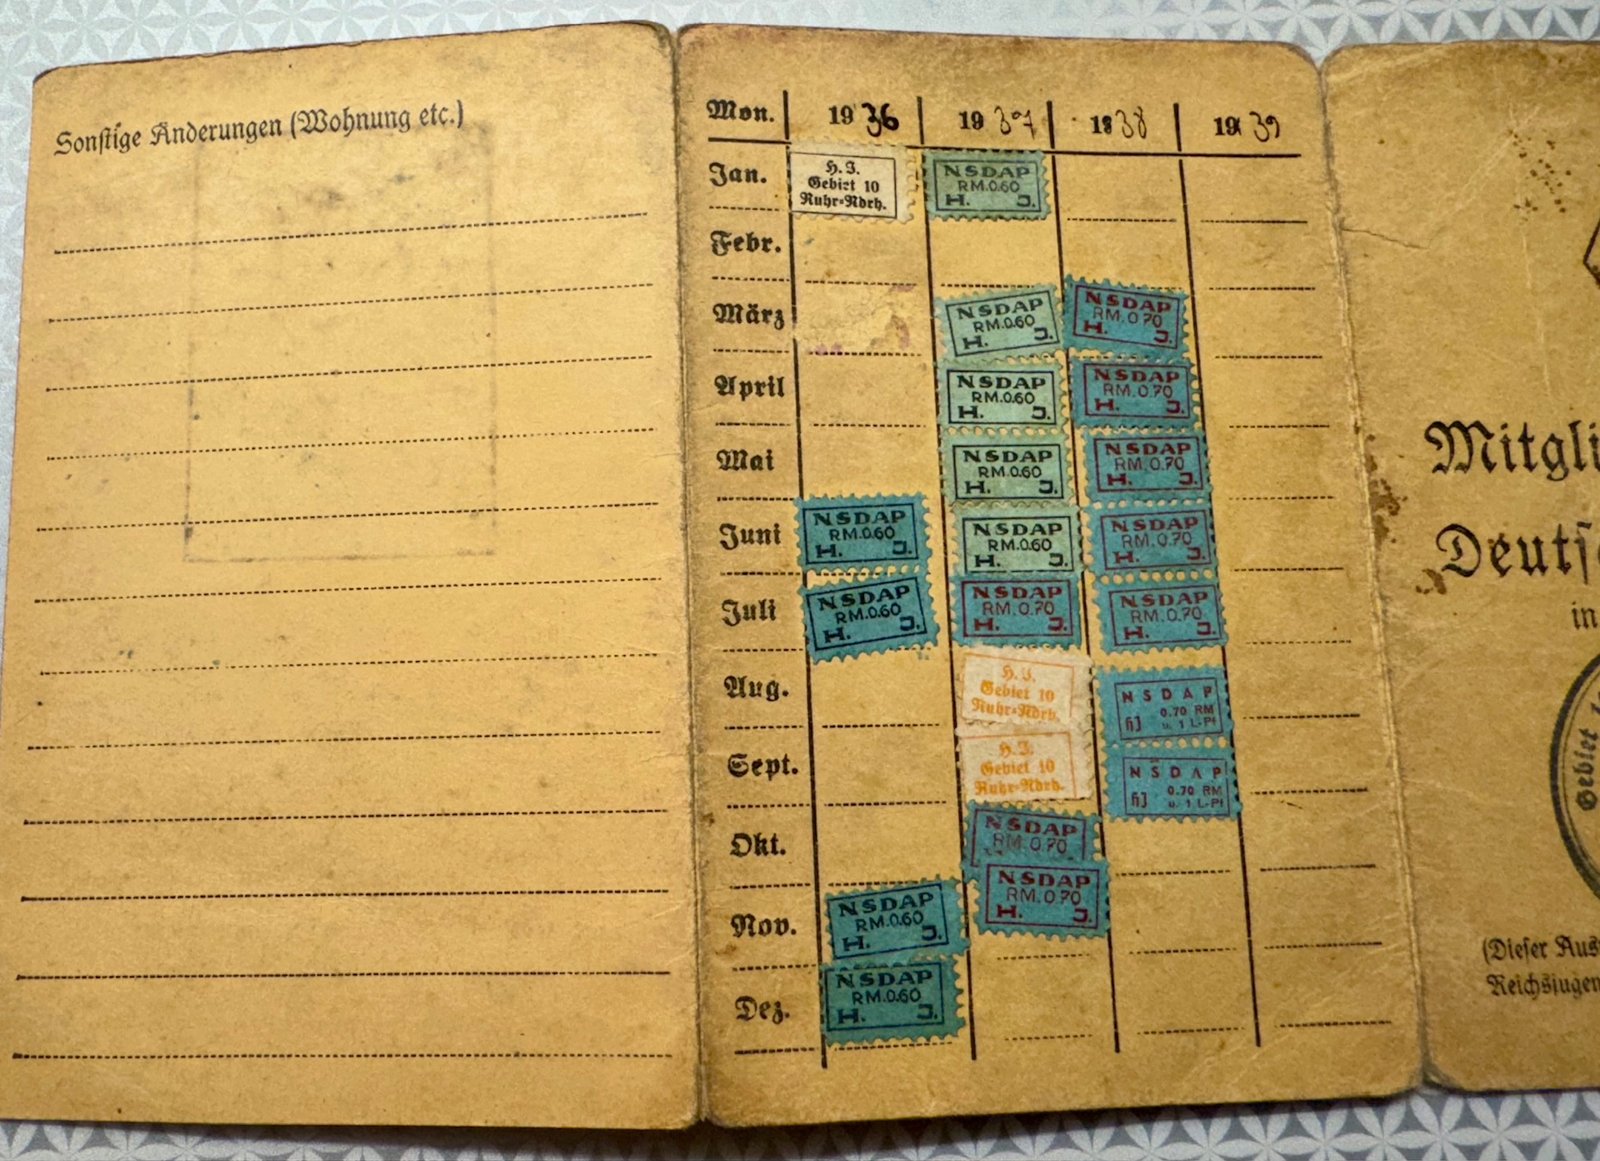 Sonstige Änderungen (Wohnung etc.)
Mon. 1936 1937 1938 1939
Jan.
H. J.
Gebiet 10
Ruhr-Ndrh.
NSDAP
RM.0.60
H. J.
Febr.
März
NSDAP
RM.0.60
H. J.
NSDAP
RM.0.70
H. J.
April
NSDAP
RM.0.60
H. J.
NSDAP
RM.0.70
H. J.
Mai
NSDAP
RM.0.60
H. J.
NSDAP
RM.0.70
H. J.
Juni
NSDAP
RM.0.60
H. J.
NSDAP
RM.0.60
H. J.
NSDAP
RM.0.70
H. J.
Juli
NSDAP
RM.0.60
H. J.
NSDAP
RM.0.70
H. J.
NSDAP
RM.0.70
H. J.
Aug.
H. J.
Gebiet 10
Ruhr-Ndrh.
NSDAP
0.70 RM
HJ u. 1 L-Pf
Sept.
H. J.
Gebiet 10
Ruhr-Ndrh.
NSDAP
0.70 RM
HJ u. 1 L-Pf
Okt.
NSDAP
RM.0.70
Nov.
NSDAP
RM.0.60
H. J.
NSDAP
RM.0.70
H. J.
Dez.
NSDAP
RM.0.60
H. J.
Mitgli
Deutsc
in
Gebiet
(Dieser Aus
Reichsjugen